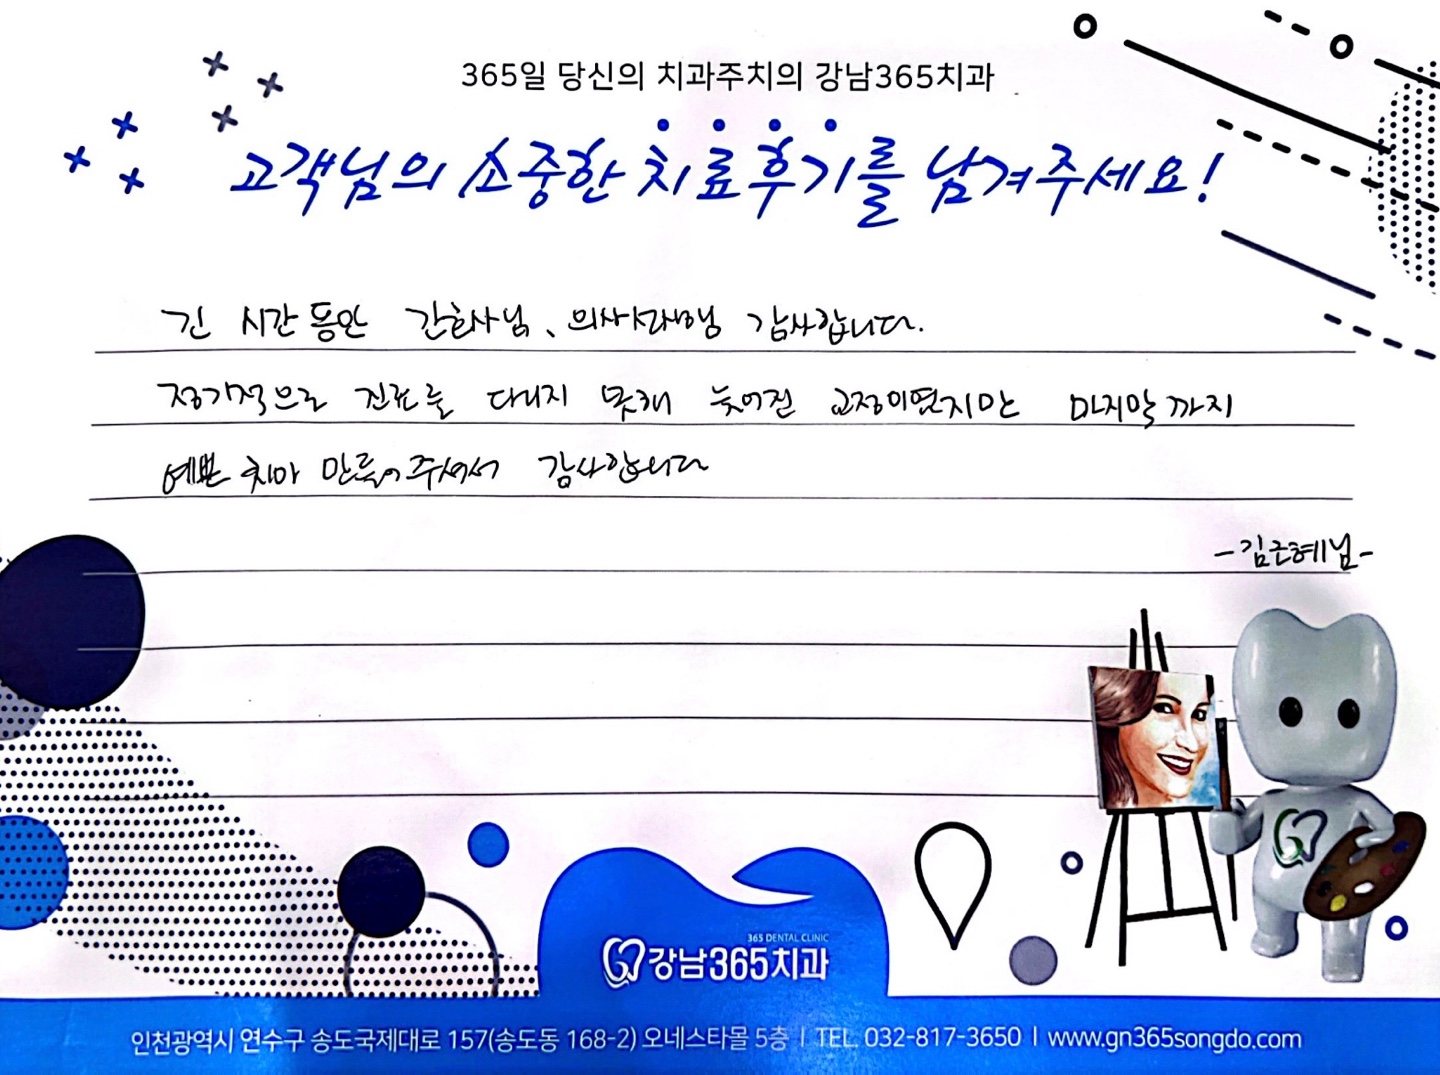 365일 당신의 치과주치의 강남365치과
고객님의 소중한 치료후기를 남겨주세요!
긴 시간동안 간호사님、의사선생님 감사합니다.
정기적으로 진료를 다니지 못해 늦어진 교정이였지만 마지막까지
예쁜 치아 만들어주셔서 감사합니다
-김은혜님-
365 DENTAL CLINIC
강남365치과
인천광역시 연수구 송도국제대로 157(송도동 168-2) 오네스타몰 5층 | TEL. 032-817-3650 | www.gn365songdo.com